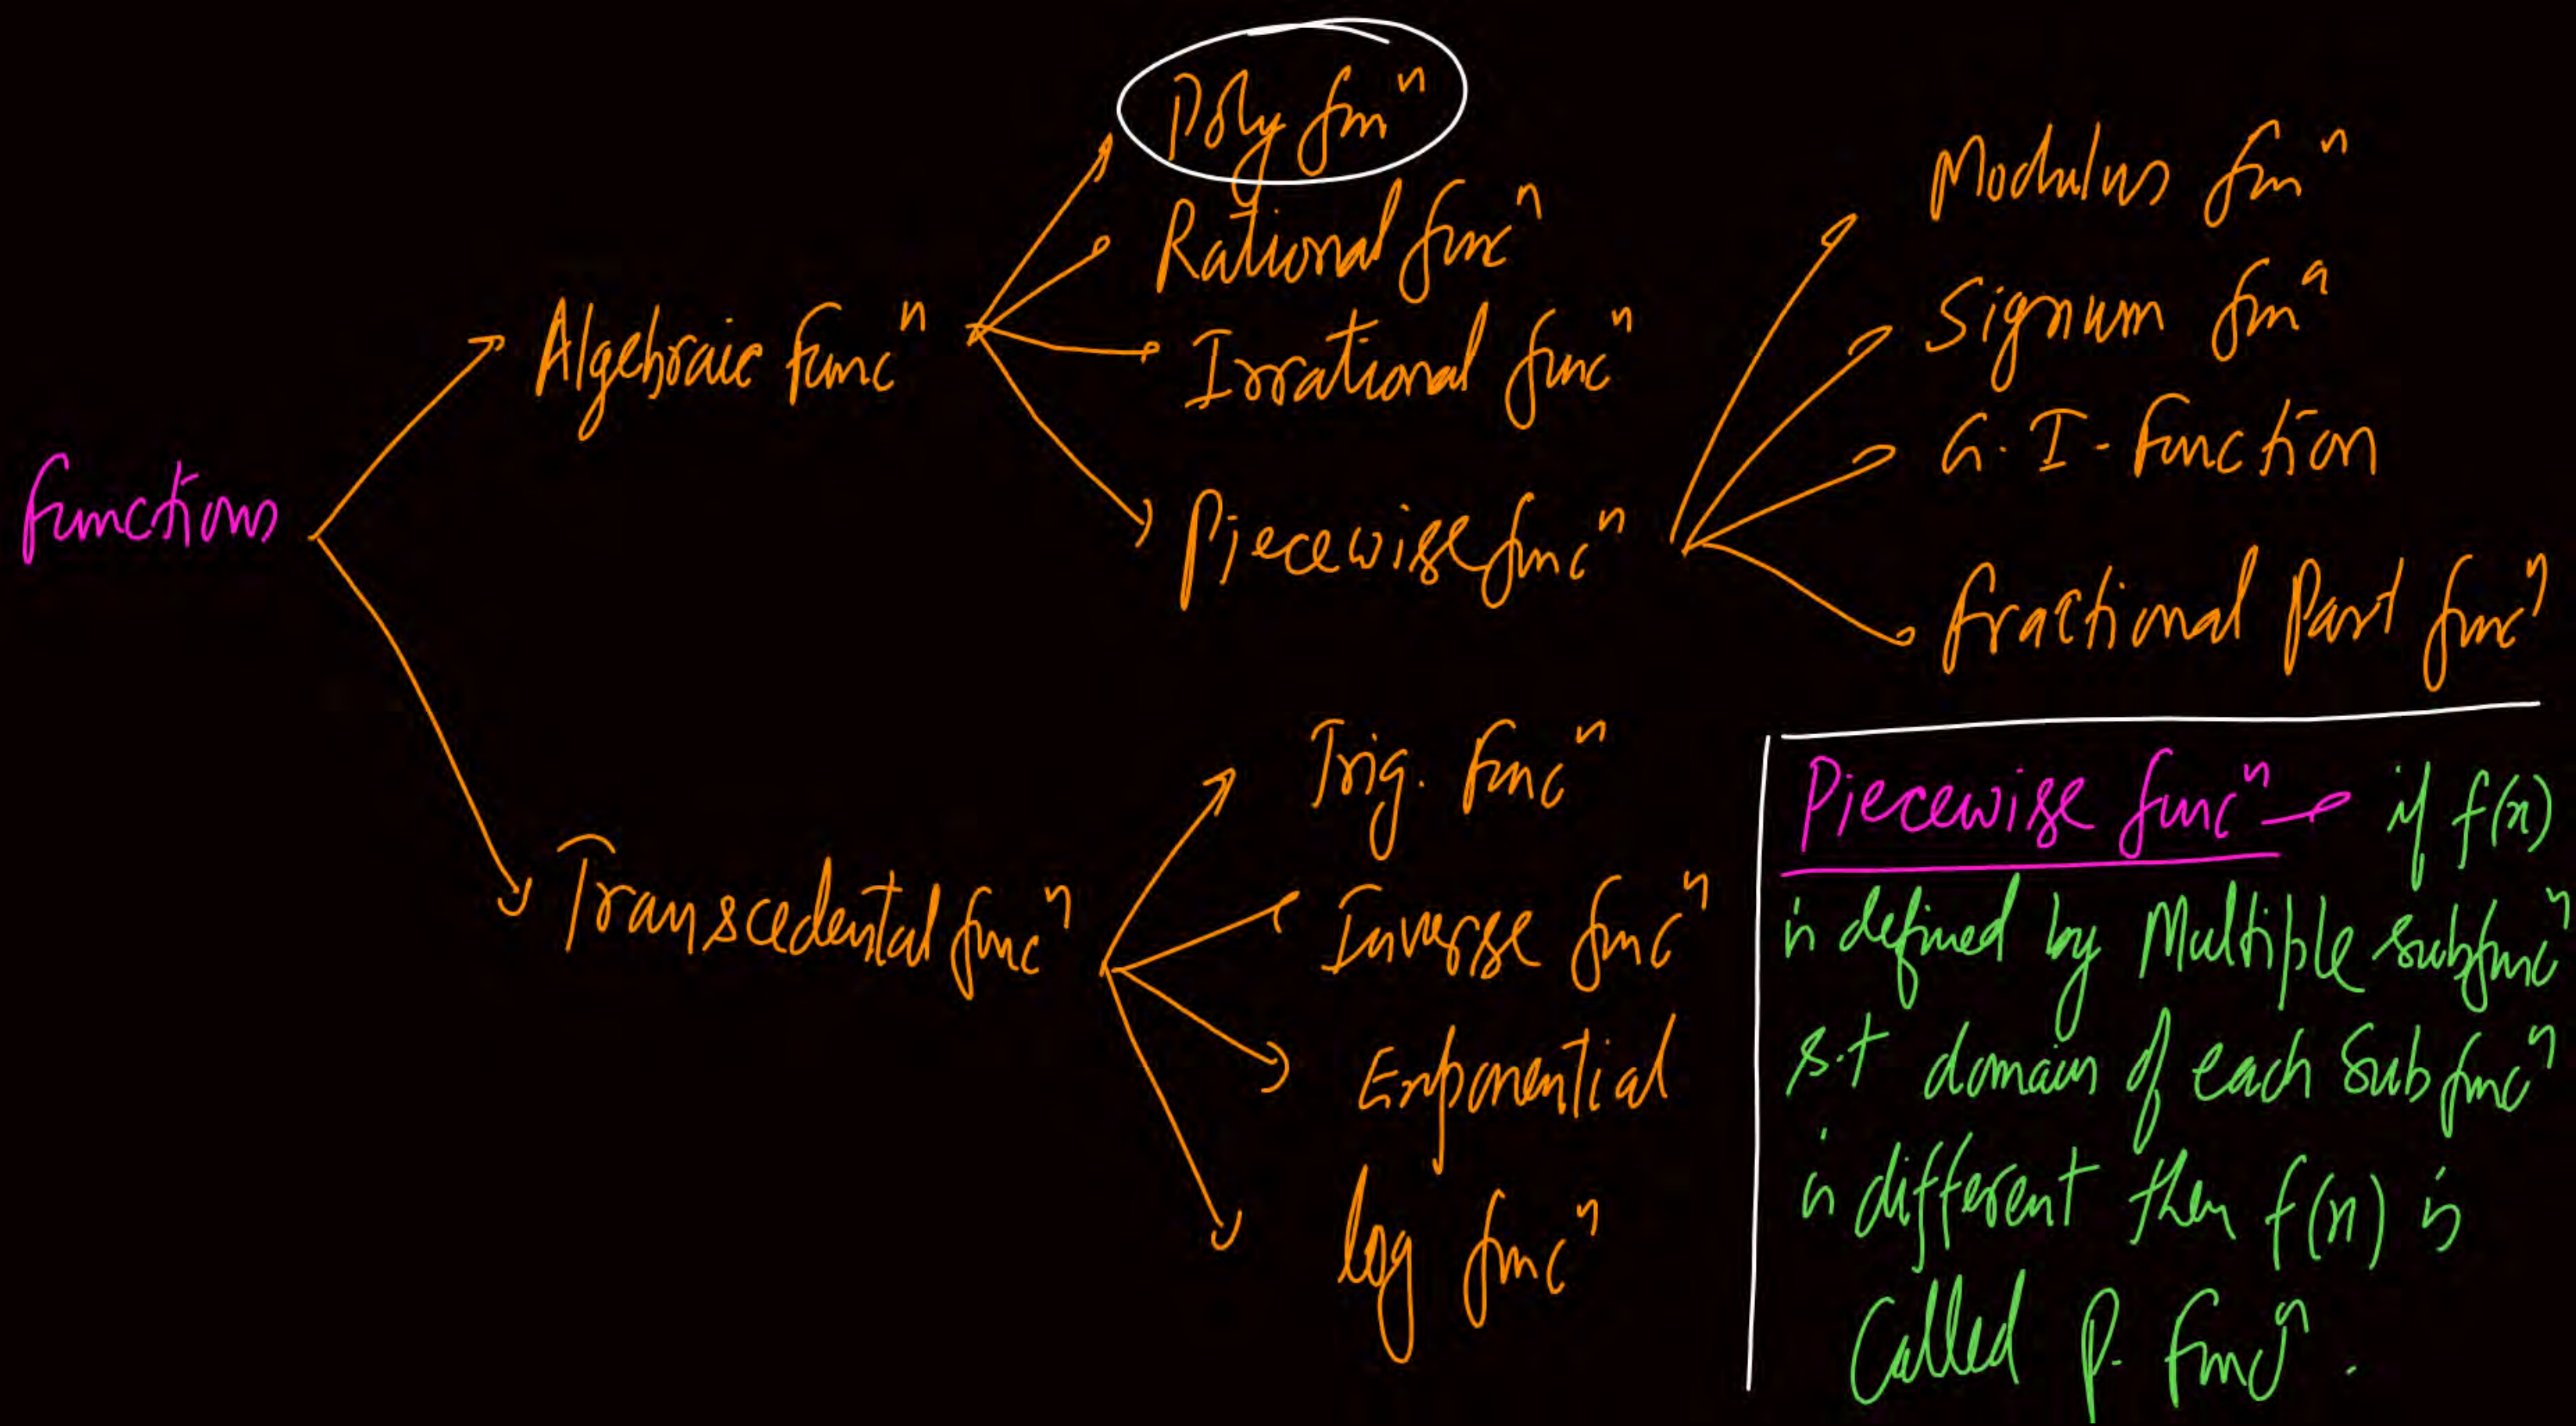 Functions
Algebraic funcⁿ
Poly fnⁿ
Rational funcⁿ
Irrational funcⁿ
Piecewise funcⁿ
Modulus fnⁿ
Signum fnⁿ
G.I-function
fractional Part funcⁿ
Transcedental funcⁿ
Trig. funcⁿ
Inverse funcⁿ
Exponential
log funcⁿ
Piecewise funcⁿ → if f(x)
is defined by Multiple subfuncⁿ
s.t domain of each Subfuncⁿ
is different then f(x) is
Called P. funcⁿ.